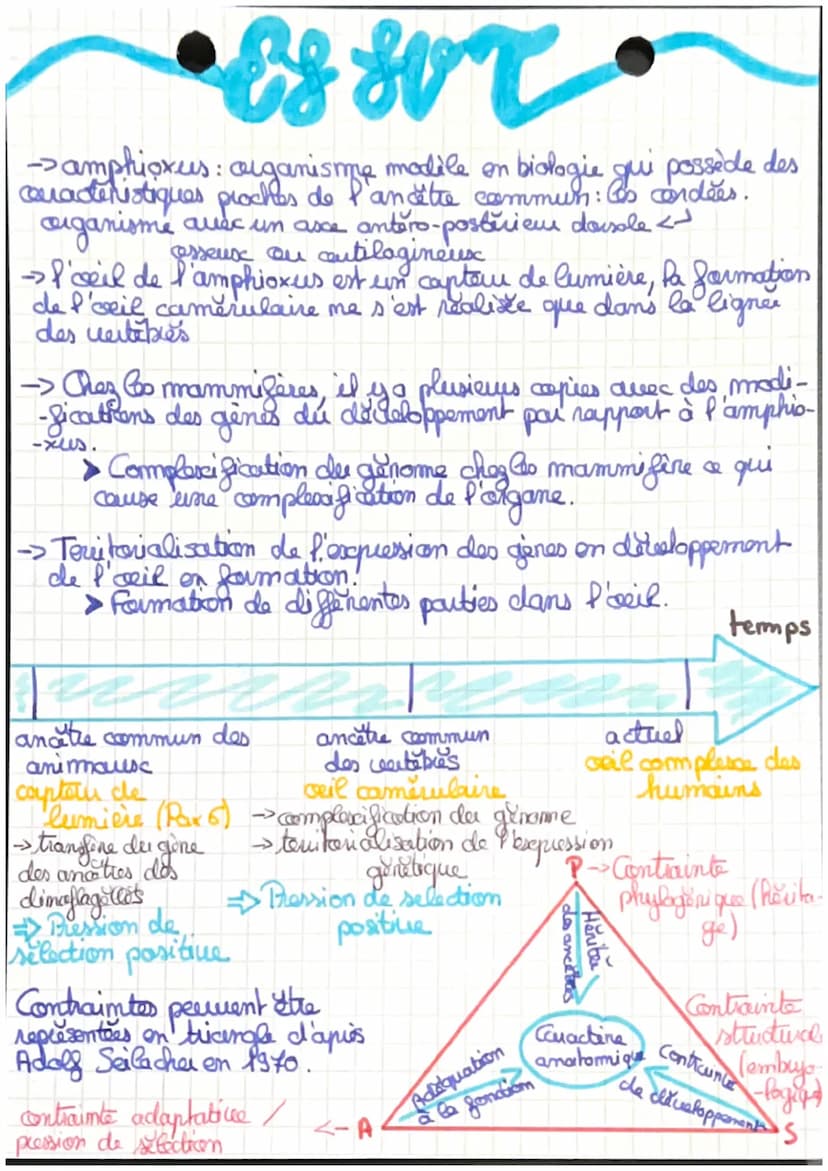 ES SVT
-> amphioxus : organisme modèle en biologie qui possède des
caractéristiques proches de l'ancêtre commun : les cordées.
organisme avec un axe antéro-postérieur dorsale <-
osseux ou cartilagineux
-> l'oeil de l'amphioxus est un capteur de lumière, la formation
de l'oeil camérulaire ne s'est réalisée que dans la lignée
des vertébrés
-> Chez les mammifères, il y a plusieurs copies avec des modi-
-fications des gènes du développement par rapport à l'amphio-
-xus.
> Complexification du génome chez les mammifère ce qui
cause une complexification de l'organe.
-> Territorialisation de l'expression des gènes en développement
de l'oeil en formation.
> Formation de différentes parties dans l'oeil.
temps
ancêtre commun des
animaux
capteur de
lumière (Pax 6)
-> transfère du gène
des ancêtres des
dinoflagellés
=> Pression de
sélection positive
ancêtre commun
des vertébrés
oeil camérulaire
-> complexification du génome
-> territorialisation de l'expression
génétique
=> Pression de selection
positive
actuel
oeil complexe des
humains
P -> Contrainte
phylogénique (hérita-
ge)
Hérité
des ancêtres
Contrainte
structural
(embryo-
-logique)
Caractère
anatomique
Adéquation
à la fonction
Contrainte
de développement
Contraintes peuvent être
représentées en triangle d'après
Adolf Seilacher en 1970.
contrainte adaptative /
pression de sélection
<- A
S